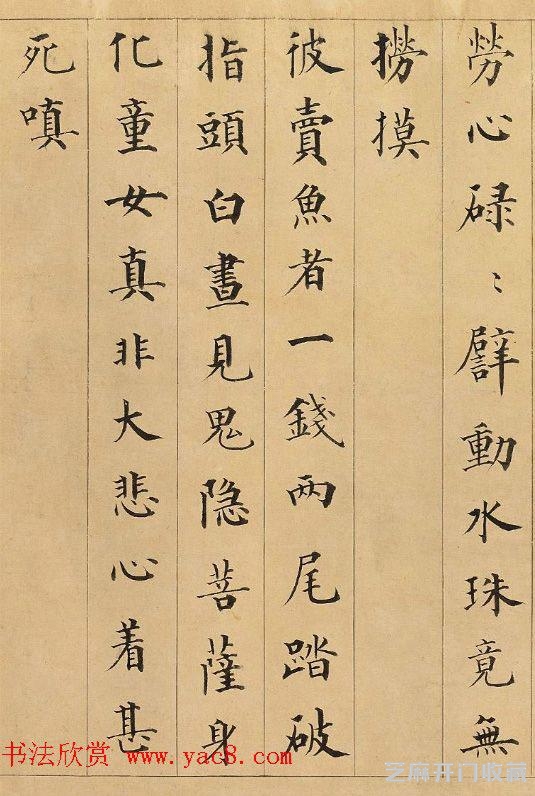 勞心碌〻譬動水珠竟無
撈摸
彼賣魚者一錢兩尾踏破
指頭白晝見鬼隐菩薩身
化童女真非大悲心着甚
死嗔
书法欣赏 www.yac8.com
芝麻开门收藏